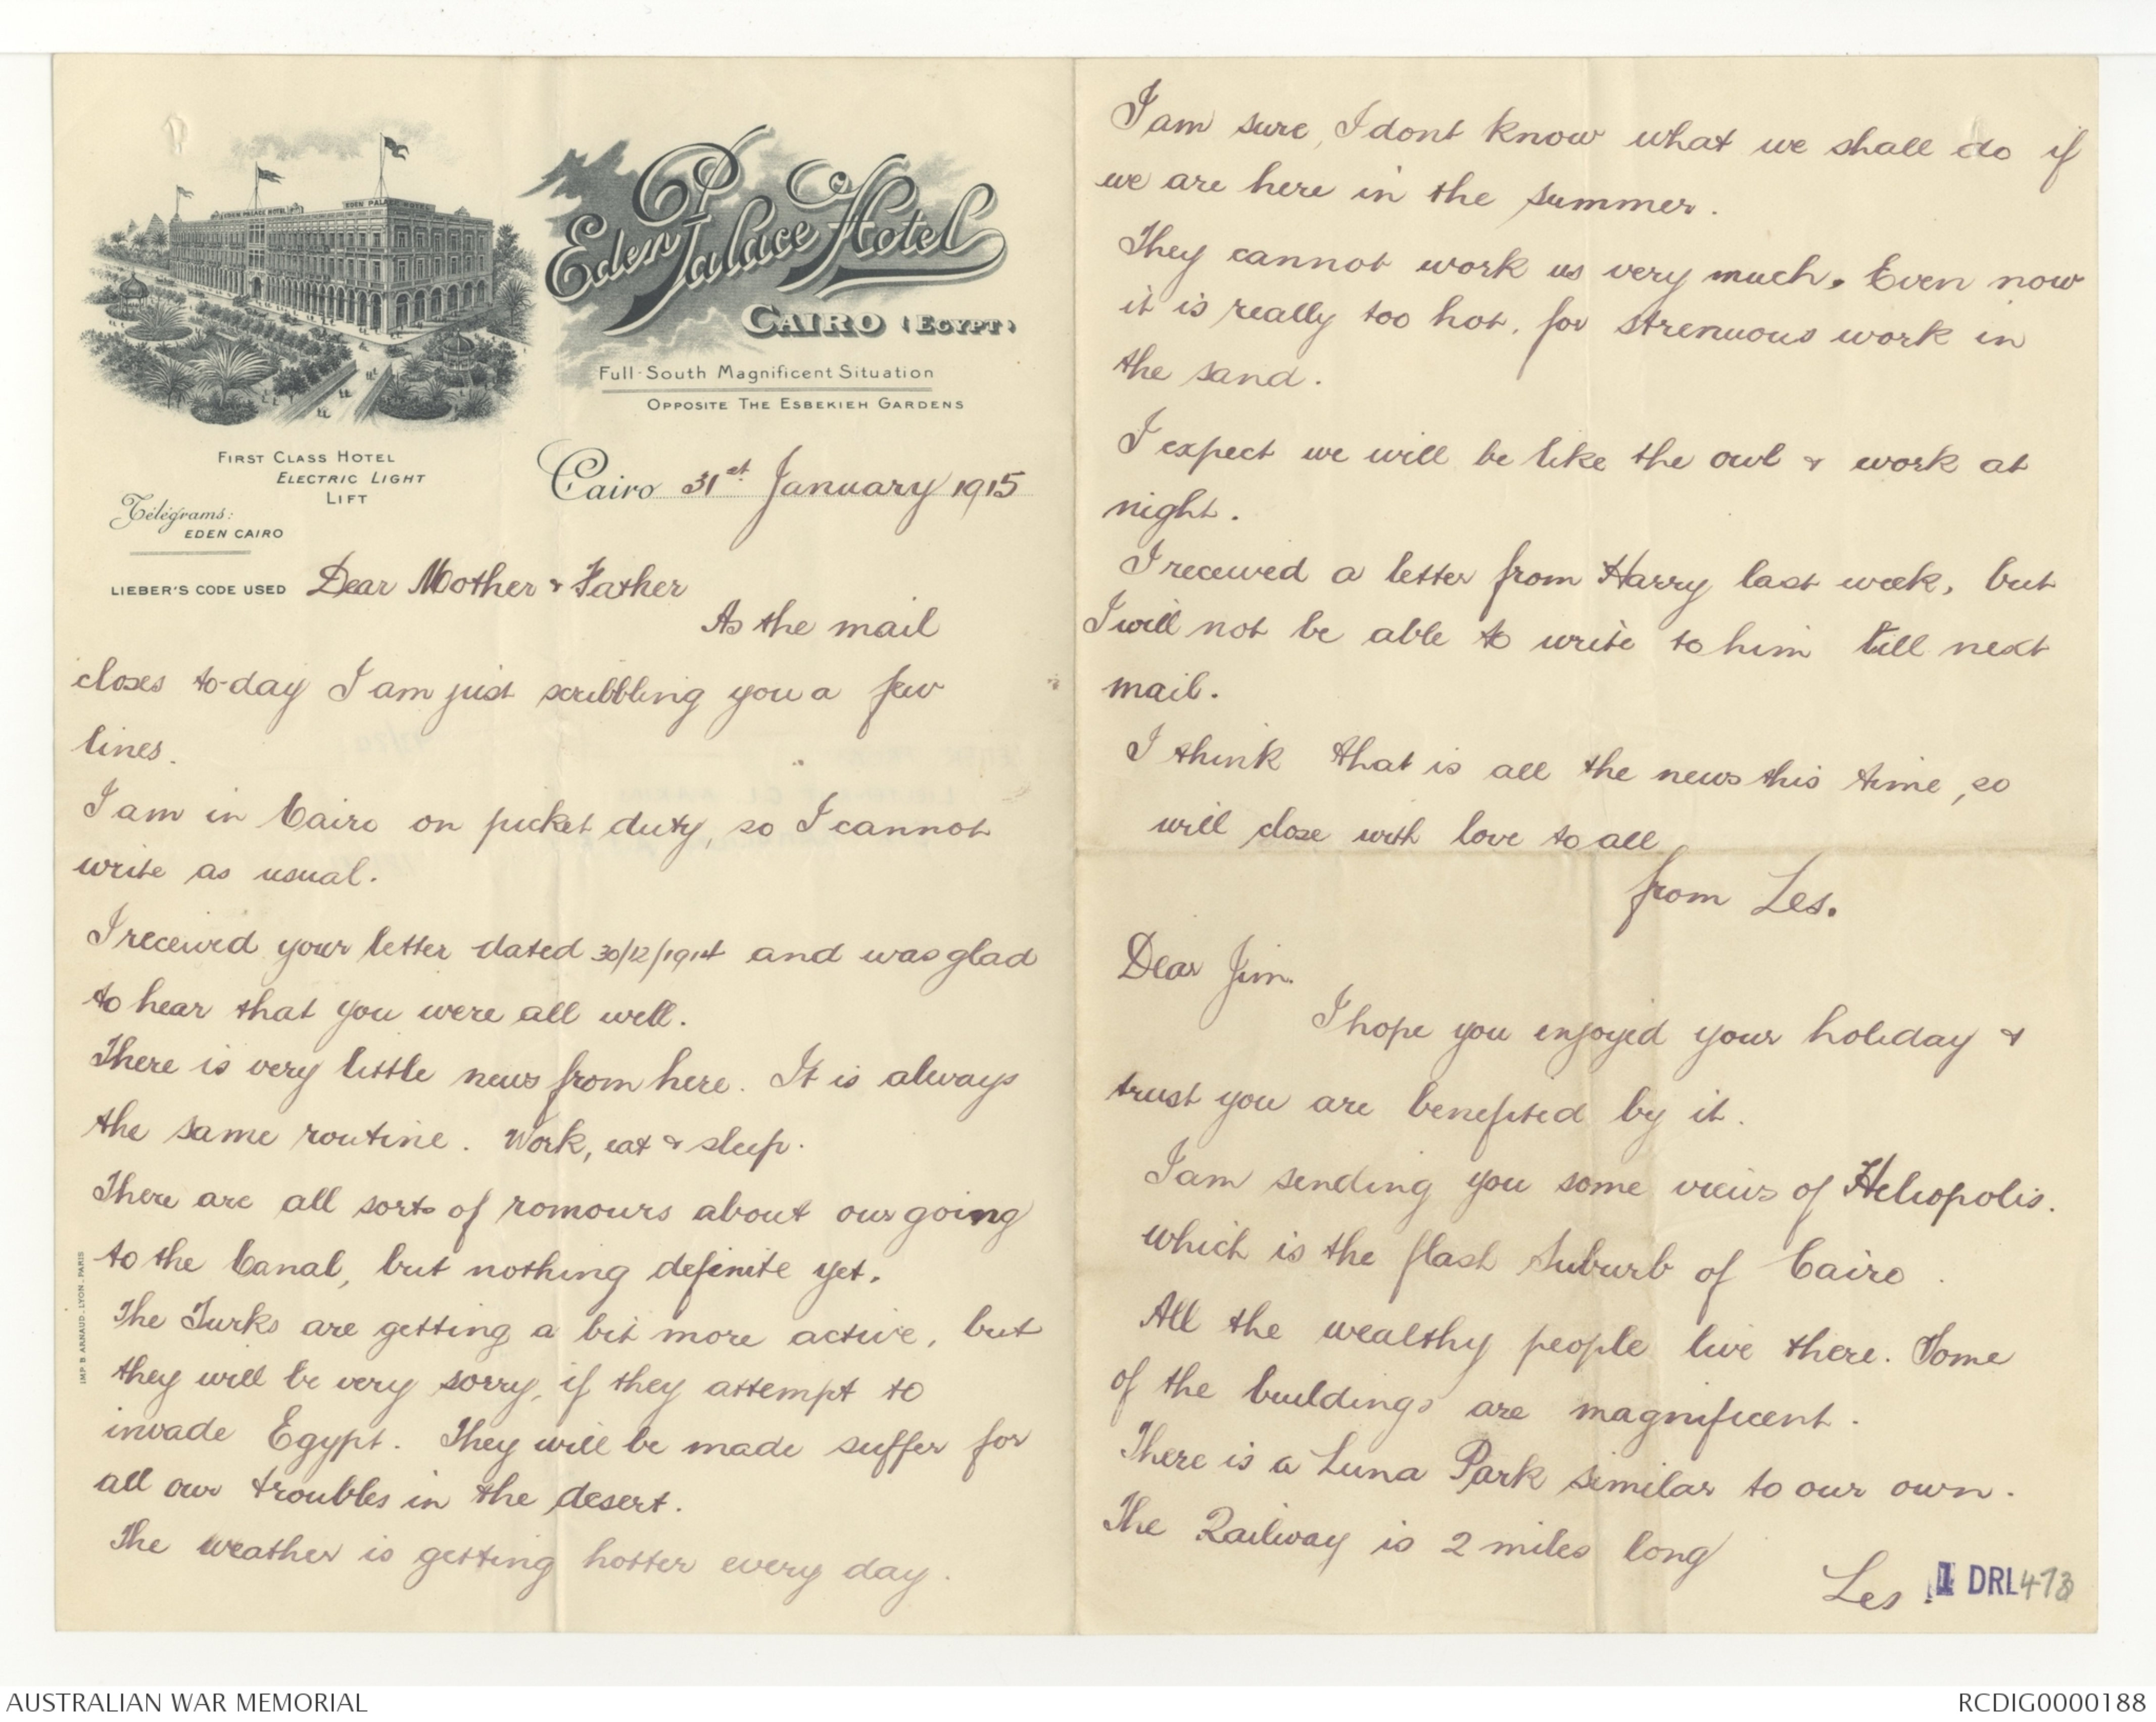 EDEN PALACE HOTEL
EDEN PALACE HOTEL
Eden Palace Hotel
CAIRO (EGYPT)
Full-South Magnificent Situation
OPPOSITE THE ESBEKIEH GARDENS
FIRST CLASS HOTEL
ELECTRIC LIGHT
LIFT
Télégrams:
EDEN CAIRO
LIEBER'S CODE USED
Cairo 31st January 1915
Dear Mother & Father
As the mail
closes to-day I am just scribbling you a few
lines.
I am in Cairo on picket duty, so I cannot
write as usual.
I received your letter dated 30/12/1914 and was glad
to hear that you were all well.
There is very little news from here. It is always
the same routine. Work, eat & sleep.
There are all sorts of romours about our going
to the Canal, but nothing definite yet.
The Turks are getting a bit more active, but
they will be very sorry, if they attempt to
invade Egypt. They will be made suffer for
all our troubles in the desert.
The weather is getting hotter every day.
IMP. B. ARNAUD. LYON. PARIS
I am sure, I dont know what we shall do if
we are here in the summer.
They cannot work us very much. Even now
it is really too hot, for strenuous work in
the sand.
I expect we will be like the owl & work at
night.
I received a letter from Harry last week, but
I will not be able to write to him till next
mail.
I think that is all the news this time, so
will close with love to all
from Les.
Dear Jim.
I hope you enjoyed your holiday &
trust you are benefited by it.
I am sending you some views of Heliopolis.
which is the flash suburb of Cairo.
All the wealthy people live there. Some
of the buildings are magnificent.
There is a Luna Park similar to our own.
The Railway is 2 miles long
Les.
1 DRL 473
AUSTRALIAN WAR MEMORIAL
RCDIG0000188